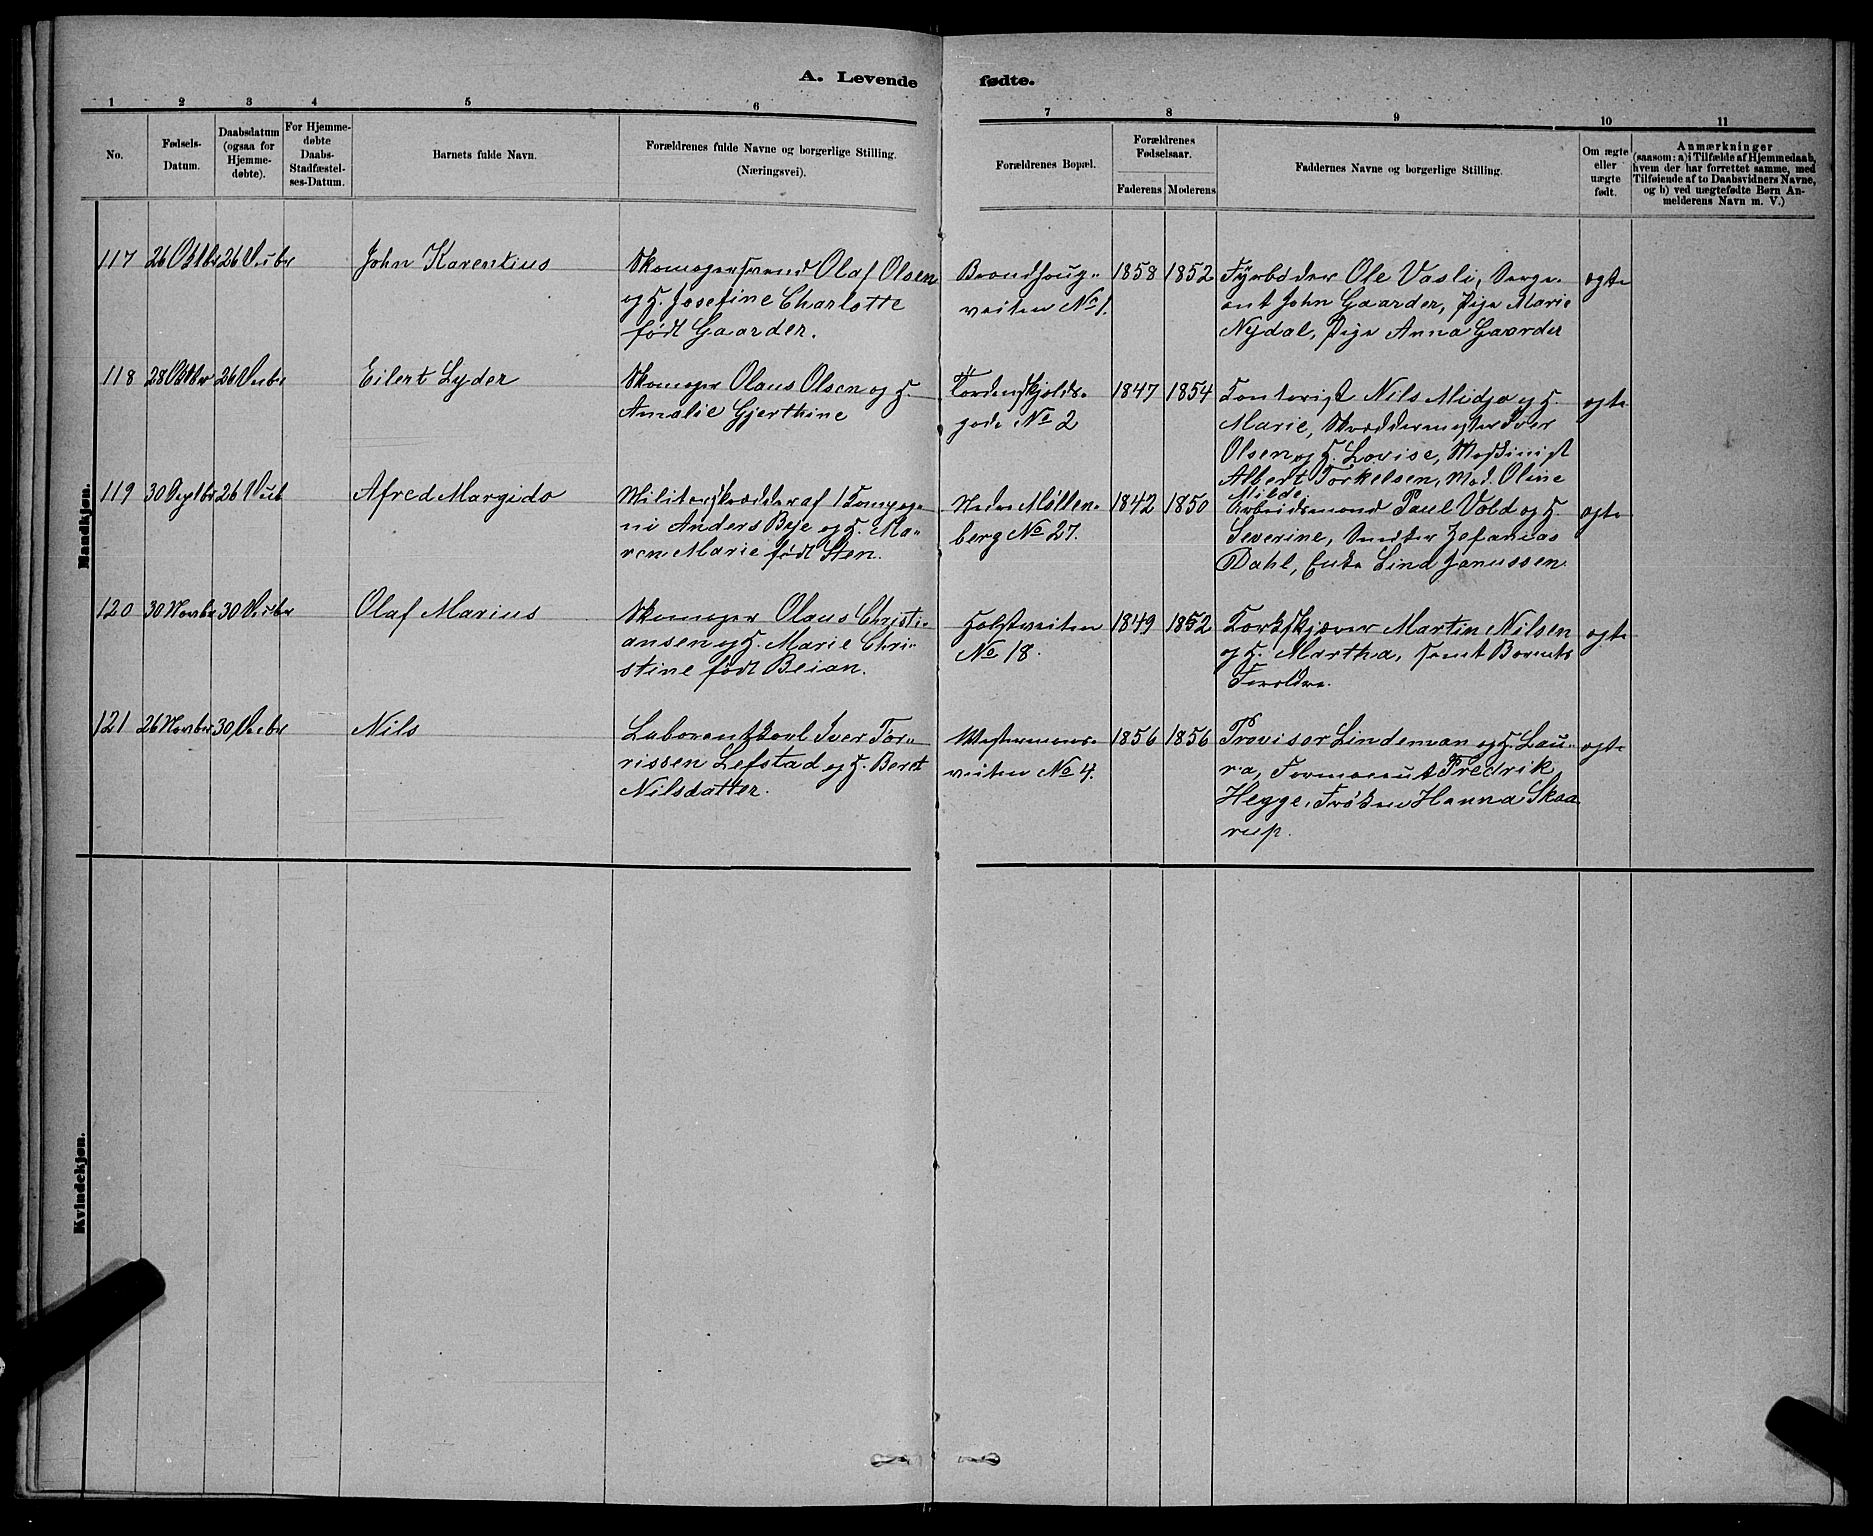 A. Levende fødte.
1 2 3 4 5 6 7 8 9 10 11
No.
Fødsels-
Datum.
Daabsdatum
(ogsaa for
Hjemme-
døbte).
For Hjemme-
døbte
Daabs-
Stadfæstel-
ses-Datum.
Barnets fulde Navn.
Forældrenes fulde Navne og borgerlige Stilling.
(Næringsvei).
Forældrenes Bopæl.
Forældrenes
Fødselsaar.
Faderens Moderens
Faddernes Navne og borgerlige Stilling.
Om ægte
eller
uægte
født.
Anmærkninger
(saasom: a) i Tilfælde af Hjemmedaab,
hvem der har forrettet samme, med
Tilføiende af to Daabsvidners Navne,
og b) ved uægtefødte Børn An-
melderens Navn m. V.)
Mandkjøn.
117 26 Oktbr 26 Decbr John Karentius
Skomagersvend Olaf Olsen
og H. Josefine Charlotte
født Gaarder.
Brandhaug-
veiten No 1.
1858 1852
Fyrbøder Ole Vasli, Serge-
ant John Gaarder, Pige Marie
Nydal, Pige Anna Gaarder
ægte
118 28 Oktbr 26 Decbr Eilert Lyder
Skomager Olaus Olsen og H.
Amalie Gjerthine
Tordenskjolds-
gade No 2
1847 1854
Kontorist Nils Midjo og H.
Marie, Skræddermester Iver
Olsen og H. Lovise, Maskinist
Albert Torkelsen, Mad. Oline
Milde.
ægte
119 30 Septbr 26 Decb Afred Margido
Militærskrædder af 1 Kompag-
ni Anders Bye og H. Ma-
ren Marie født Sten.
Nedre Møllen-
berg No 27.
1842 1850
Arbeidsmand Paul Vold og H
Severine, Snedker Zefanias
Dahl, Enke Lind Janussen
ægte
120 30 Novbr 30 Decbr Olaf Marius
Skomager Olaus Christi-
ansen og H. Marie Chri-
stine født Beian.
Holstveiten
No 18.
1849 1852
Korkskjærer Martin Nilsen
og H. Martha, samt Barnets
Forældre.
ægte
121 26 Novbr 30 Decbr Nils
Laborantkarl Iver Tor-
rissen Lefstad og H. Beret
Nilsdatter.
Westermans-
veiten No 4.
1856 1856
Provisor Lindeman og H. Lau-
ra, Farmaceut Fredrik
Hegge, Frøken Hanna Skaa
rup.
ægte
Kvindekjøn.